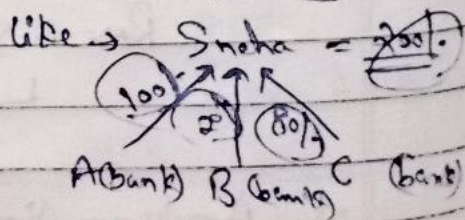 like → Sneha =
100% 80%
A(bank) B (bank) C (bank)